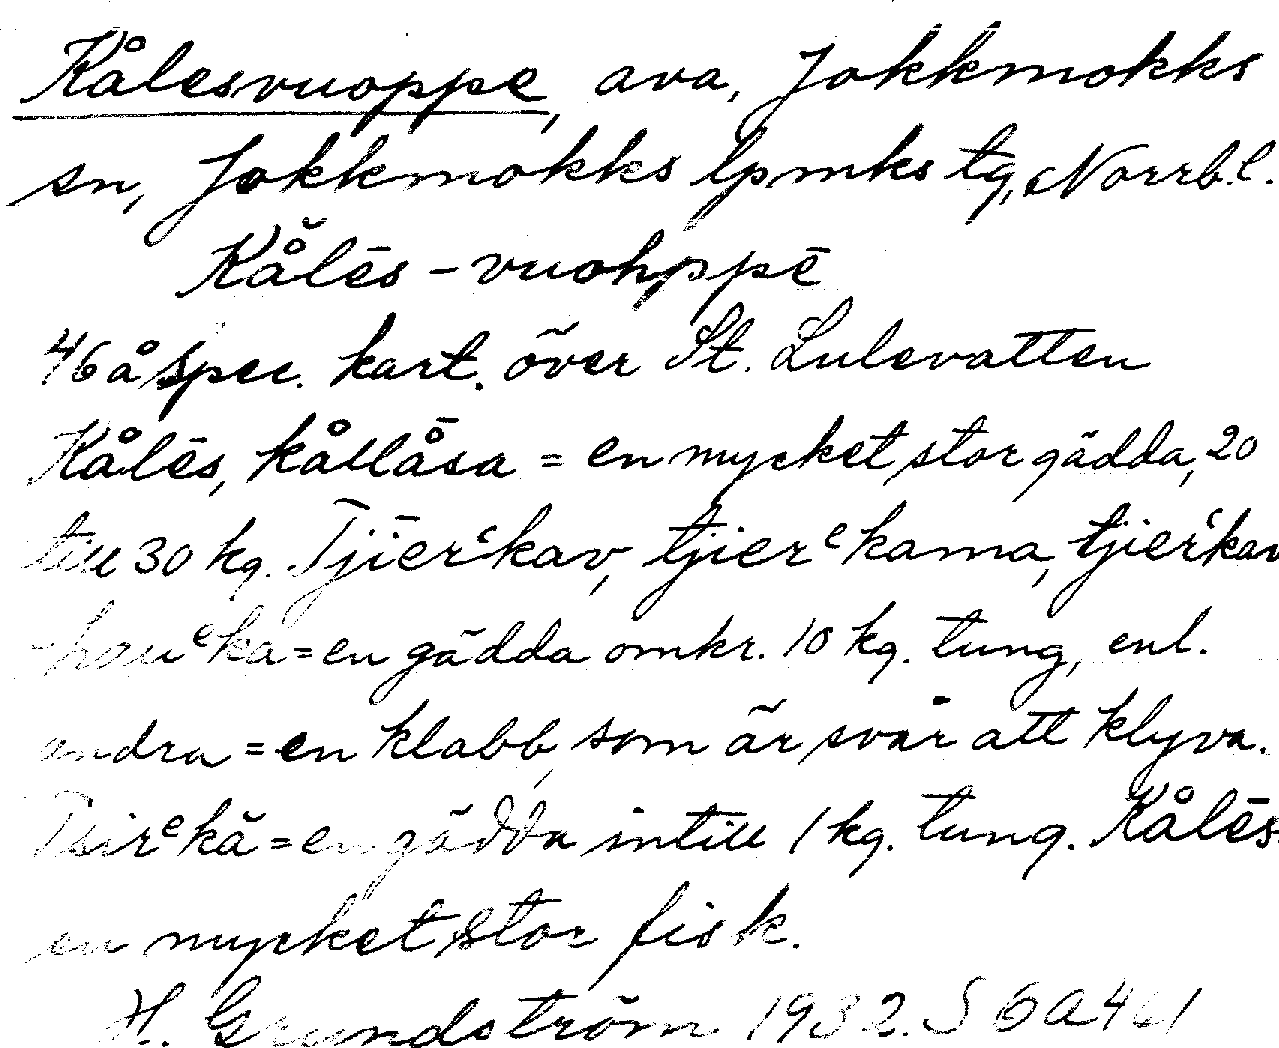 Kålesvuoppe, ava, Jokkmokks
sn, Jokkmokks lpmks tg, Norrb. l.
Kå̆lēs-vuohppē
46 å spec. kart. över St. Lulevatten
Kålēs, kållå̄sa = en mycket stor gädda, 20
till 30 kg. Tjīerᵋkav, tjierᵉkama, tjierᵋkav
-hauᵉka = en gädda omkr. 10 kg. tung, enl.
andra = en klabb, som är svår att klyva.
Tsirᵉkă = en gädda intill 1 kg. tung. Kålēs
en mycket stor fisk.
H. Grundström 1932. S 6a461